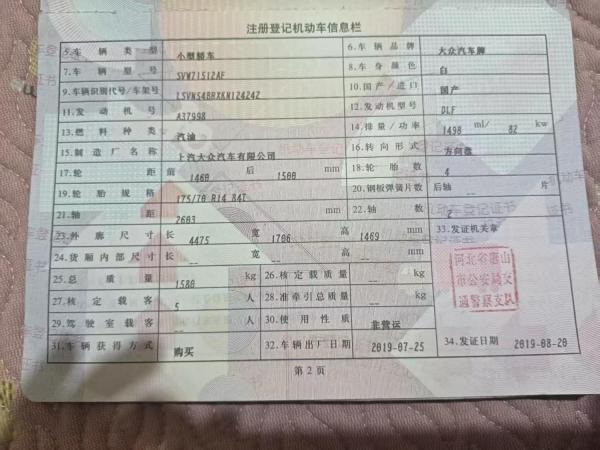 注册登记机动车信息栏
5.车辆类型 小型轿车 6.车辆品牌 大众汽车牌
7.车辆型号 SVW71512AF 8.车身颜色 白
9.车辆识别代号/车架号 10.国产/进口 国产
11.发动机号 A37998 12.发动机型号 DLF
13.燃料种类 汽油 14.排量/功率 1498 ml/ 82 kw
15.制造厂名称 上汽大众汽车有限公司 16.转向形式 方向盘
17.轮距 前 1460 后 1500 mm 18.轮胎数 4
19.轮胎规格 175/70 R14 84T 20.钢板弹簧片数 后轴 -- 片
21.轴距 2603 mm 22.轴数 2
23.外廓尺寸 长 4475 宽 1706 高 1469 mm 33.发证机关章
24.货厢内部尺寸 长 -- 宽 -- 高 -- mm
25.总质量 1580 kg 26.核定载质量 -- kg
27.核定载客 5 人 28.准牵引总质量 -- kg
29.驾驶室载客 -- 人 30.使用性质 非营运
31.车辆获得方式 购买 32.车辆出厂日期 2019-07-25 34.发证日期 2019-08-20
河北省唐山
市公安局交
通警察支队
第2页